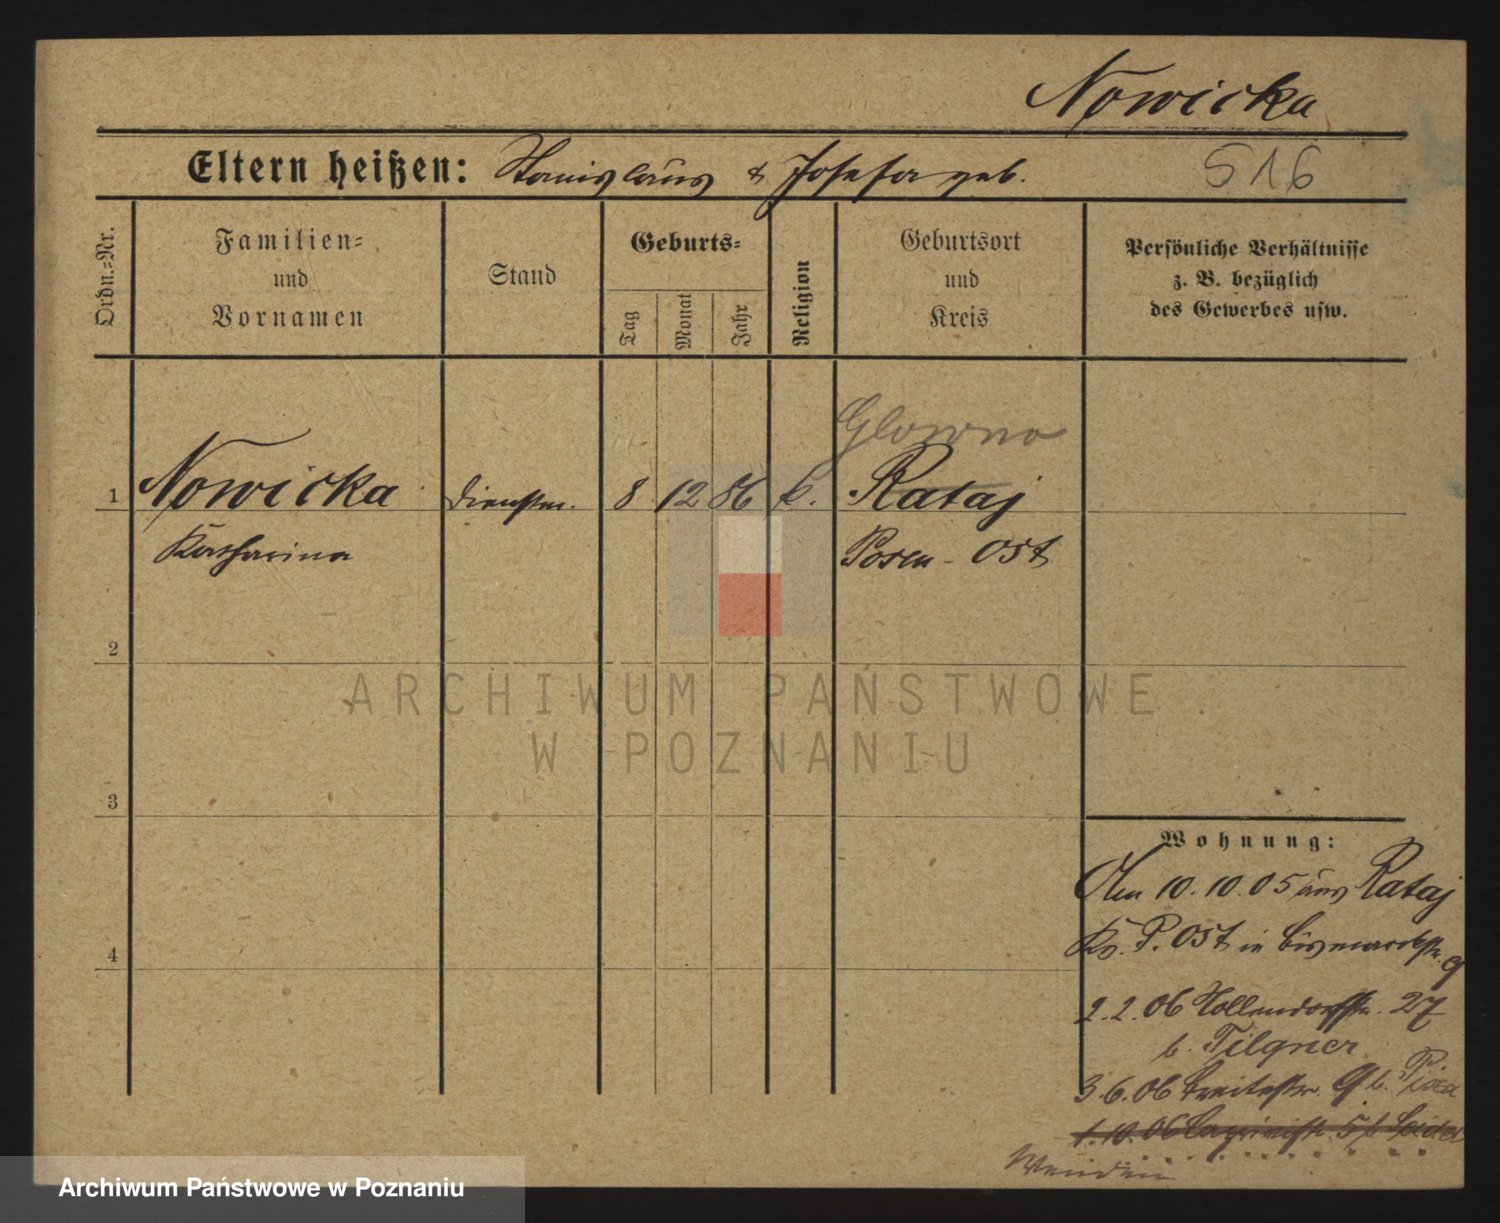 Nowicka
Eltern heißen: Stanislaus & Josefa geb.
516
Ordn.-Nr.
Familien-
und
Vornamen
Stand
Geburts-
Tag
Monat
Jahr
Religion
Geburtsort
und
Kreis
Persönliche Verhältnisse
z. B. bezüglich
des Gewerbes usw.
Glowno
1 Nowicka Dienstm. 8 12 86 k. Rataj
Katharina Posen-Ost
2
3
4
ARCHIWUM PAŃSTWOWE
W POZNANIU
Wohnung:
Am 10.10.05 aus Rataj
Kr. P. Ost in Bismarckstr. 9
2.2.06 Hollendorffstr. 27
b. Tilgner
3.6.06 Breitestr. 9 b.
1.10.06 5 b.
Wenden
Archiwum Państwowe w Poznaniu